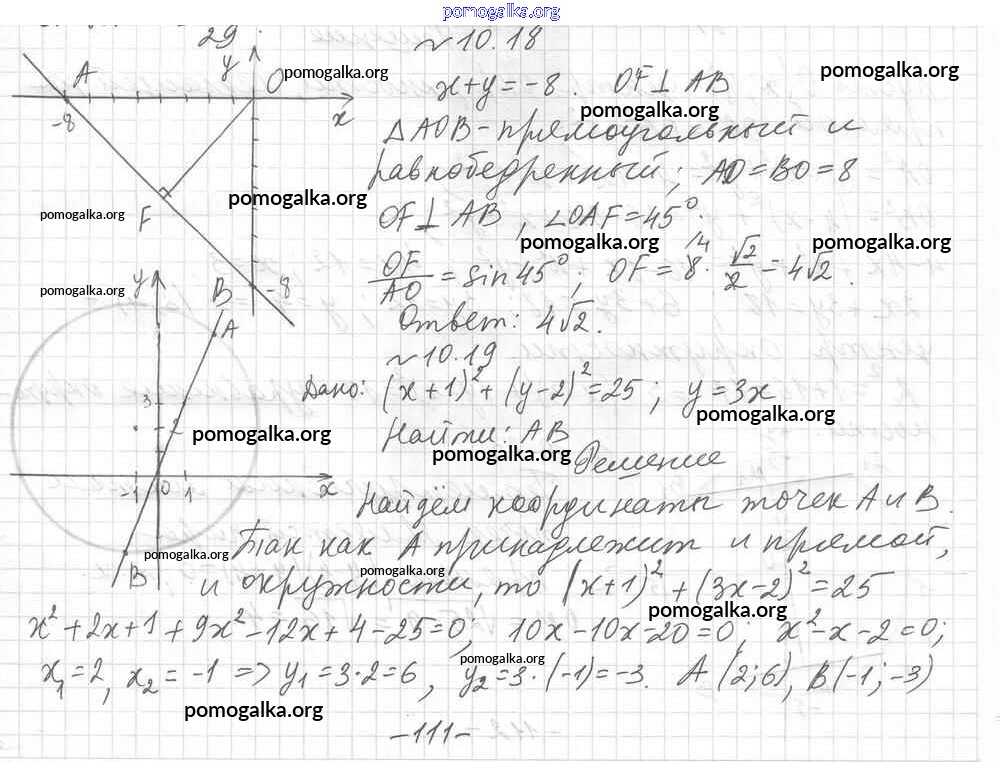 pomogalka.org
29.
№10.18
x+y=-8. OF⊥AB
ΔAOB-прямоугольный и
равнобедренный; AO=BO=8
OF⊥AB, ∠OAF=45°.
OF/AO = sin45°; OF = 8·√2/2 = 4√2.
Ответ: 4√2.
A
y
O
x
-8
F
-8
№10.19
Дано: (x+1)²+(y-2)²=25; y=3x
Найти: AB
Решение
Найдём координаты точек A и B.
Так как A принадлежит и прямой,
и окружности, то (x+1)²+(3x-2)²=25
y
B
A
3
2
-1 0 1
x
B
x²+2x+1+9x²-12x+4-25=0; 10x-10x-20=0; x²-x-2=0;
x₁=2, x₂=-1 => y₁=3·2=6, y₂=3·(-1)=-3. A(2;6), B(-1;-3)
-111-
pomogalka.org
pomogalka.org
pomogalka.org
pomogalka.org
pomogalka.org
pomogalka.org
pomogalka.org
pomogalka.org
pomogalka.org
pomogalka.org
pomogalka.org
pomogalka.org
pomogalka.org
pomogalka.org
pomogalka.org
pomogalka.org
pomogalka.org